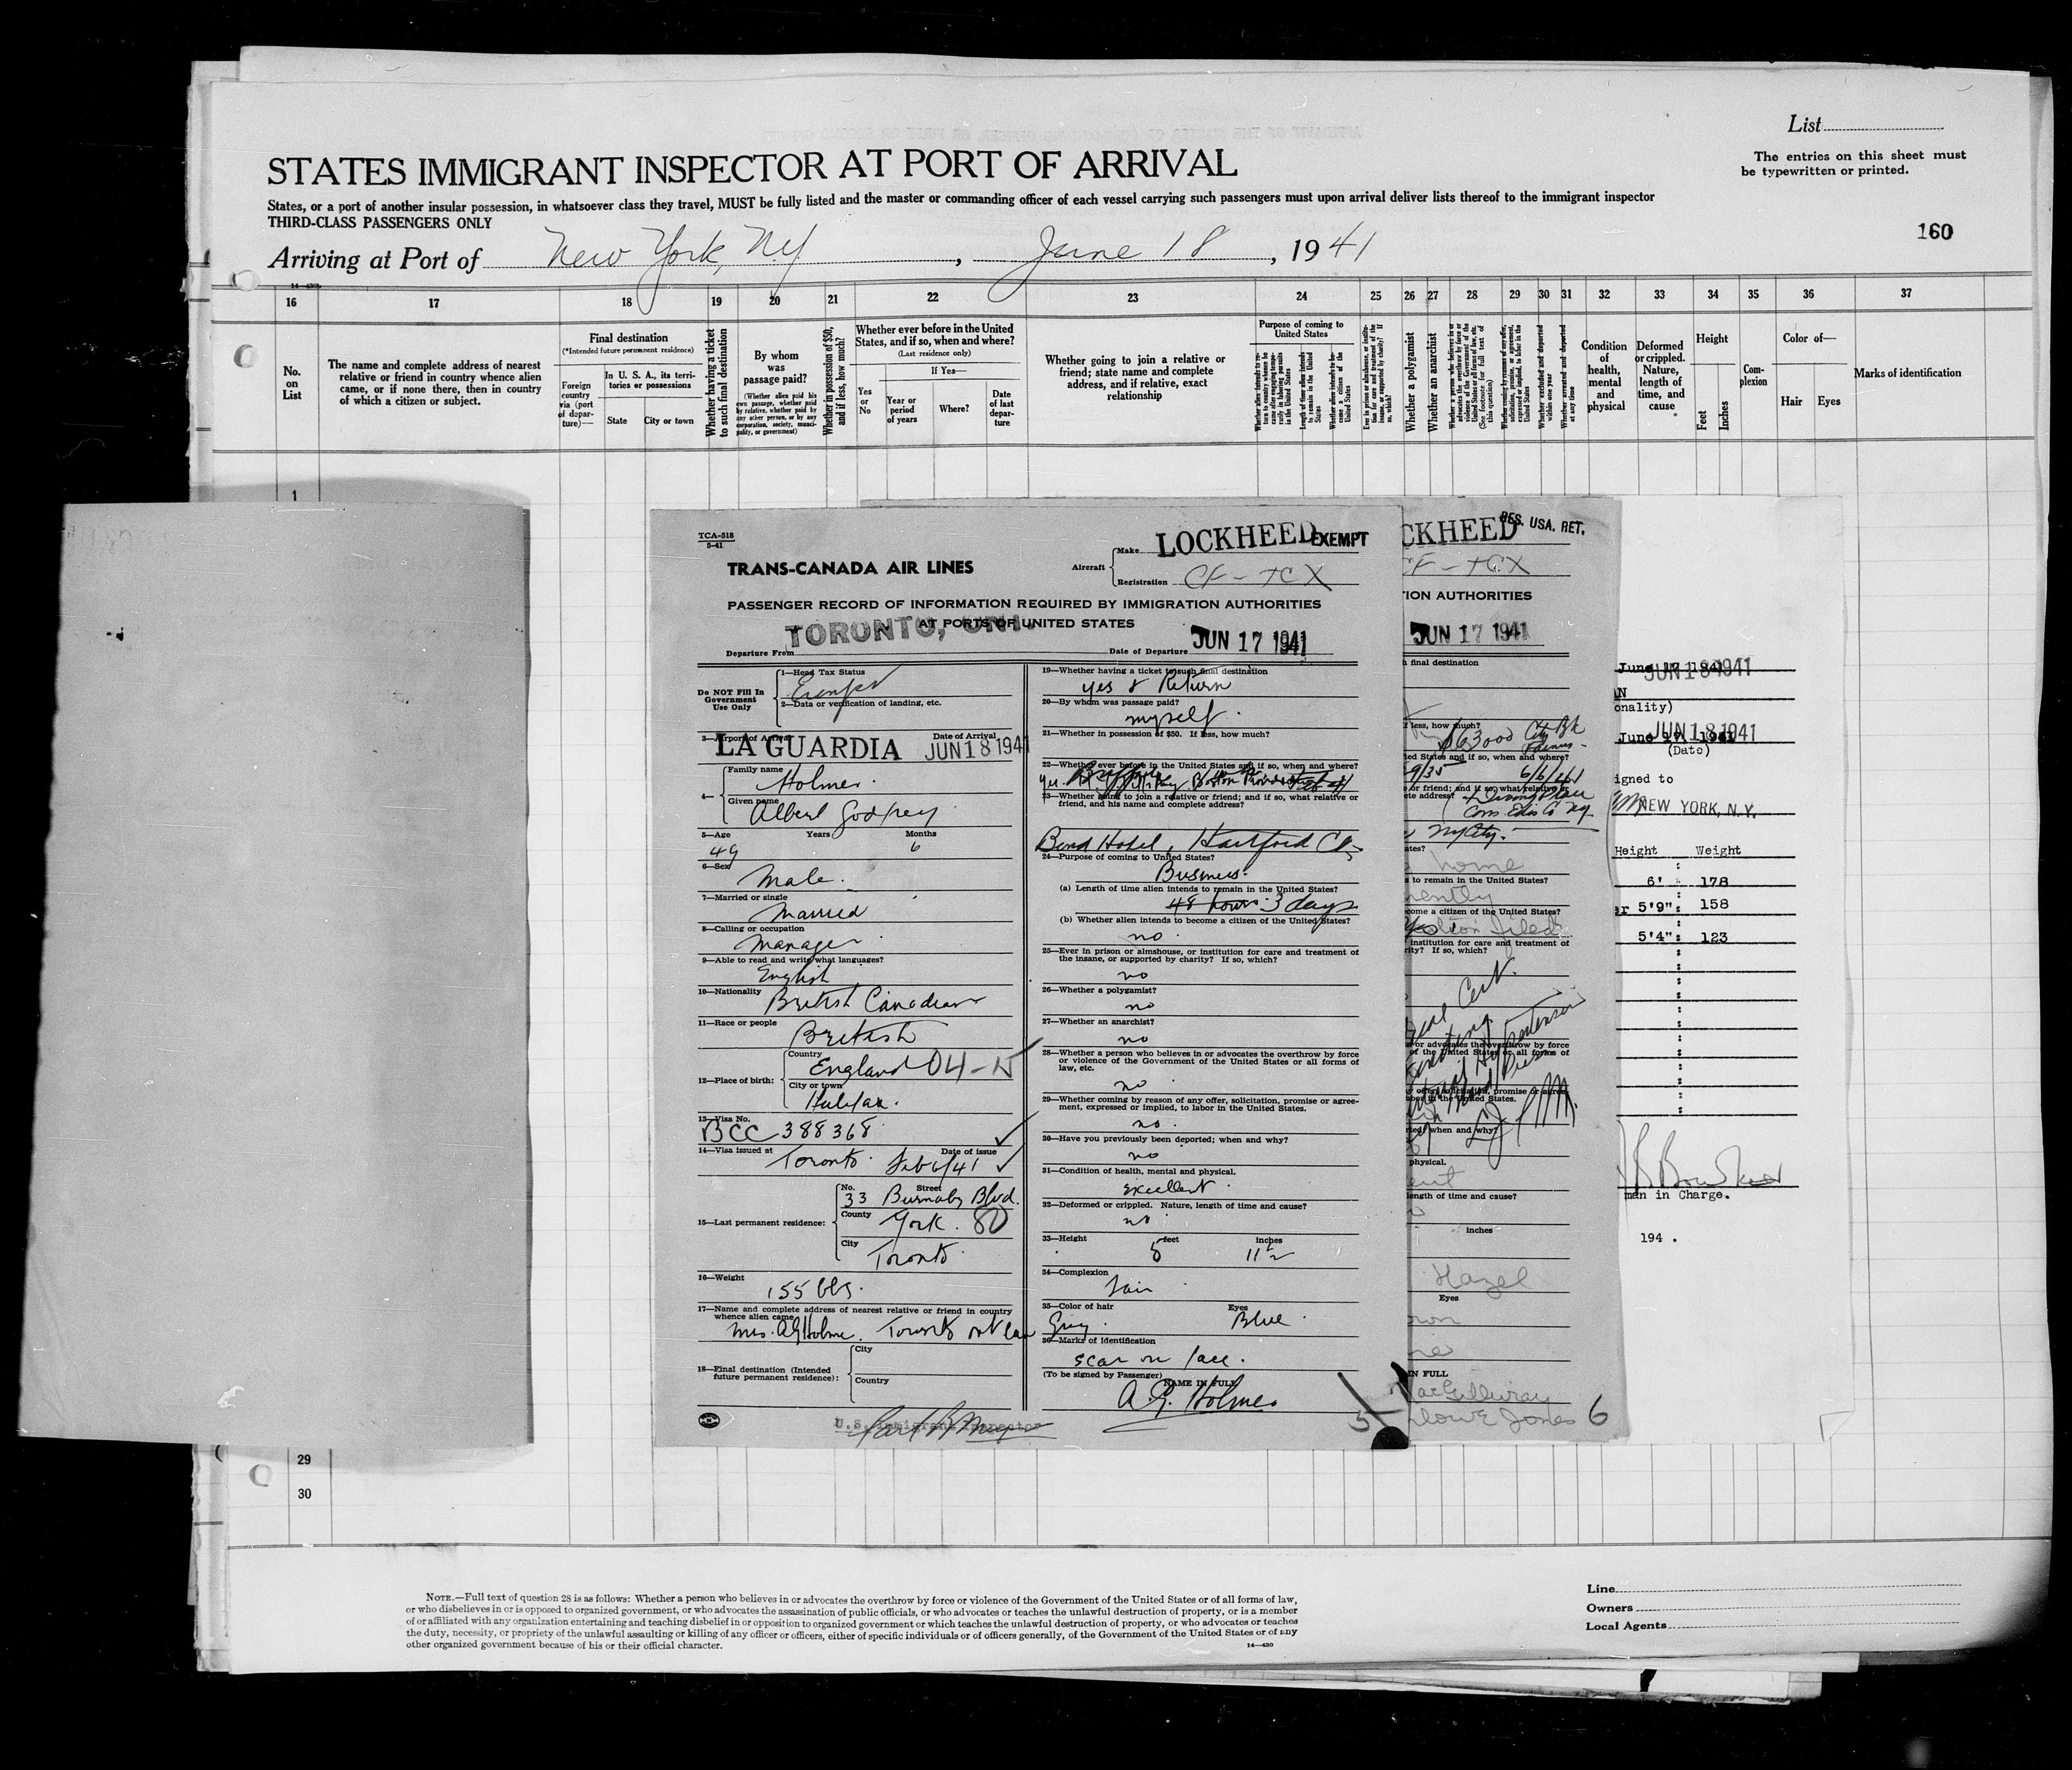 List
The entries on this sheet must
be typewritten or printed.
STATES IMMIGRANT INSPECTOR AT PORT OF ARRIVAL
States, or a port of another insular possession, in whatsoever class they travel, MUST be fully listed and the master or commanding officer of each vessel carrying such passengers must upon arrival deliver lists thereof to the immigrant inspector
THIRD-CLASS PASSENGERS ONLY
160
Arriving at Port of New York, NY, June 18, 1941
16 17 18 19 20 21 22 23 24 25 26 27 28 29 30 31 32 33 34 35 36 37
No.
on
List
The name and complete address of nearest
relative or friend in country whence alien
came, or if none there, then in country
of which a citizen or subject.
Final destination
(*Intended future permanent residence)
Foreign
country
via (port
of depar-
ture)—
In U. S. A., its terri-
tories or possessions
State
City or town
Whether having a ticket
to such final destination
By whom
was
passage paid?
(Whether alien paid his
own passage, whether paid
by relative, whether paid by
any other person, or by any
corporation, society, munici-
pality, or government)
Whether in possession of $50,
and if less, how much?
Whether ever before in the United
States, and if so, when and where?
(Last residence only)
Yes
or
No
If Yes—
Year or
period
of years
Where?
Date
of last
depar-
ture
Whether going to join a relative or
friend; state name and complete
address, and if relative, exact
relationship
Purpose of coming to
United States
Length of time alien intends
to remain in the United
States
Whether alien intends to be-
come a citizen of the
United States
Whether a polygamist
Whether an anarchist
Condition
of
health,
mental
and
physical
Deformed
or crippled.
Nature,
length of
time, and
cause
Height
Feet
Inches
Com-
plexion
Color of—
Hair
Eyes
Marks of identification
1
TCA-518
5-41
TRANS-CANADA AIR LINES
Aircraft
Make LOCKHEED EXEMPT
Registration CF-TCX
PASSENGER RECORD OF INFORMATION REQUIRED BY IMMIGRATION AUTHORITIES
AT PORTS OF UNITED STATES
Departure From TORONTO, ONT.
Date of Departure JUN 17 1941
Do NOT Fill In
Government
Use Only
1—Head Tax Status
Exempt
2—Data or verification of landing, etc.
3—Airport of Arrival LA GUARDIA
Date of Arrival JUN 18 1941
4—
Family name
Holmes
Given name
Albert Godfrey
5—Age Years Months
49 6
6—Sex
Male.
7—Married or single
Married
8—Calling or occupation
Manager
9—Able to read and write what languages?
English
10—Nationality
British Canadian
11—Race or people
British
12—Place of birth:
Country
England 04-
City or town
Halifax.
13—Visa No.
BCC 388368
14—Visa issued at Date of issue
Toronto. Feb 6/41
15—Last permanent residence:
No. Street
33 Burnaby Blvd.
County
York. 80
City
Toronto
16—Weight
155 lbs.
17—Name and complete address of nearest relative or friend in country
whence alien came
Mrs. AG Holmes. Toronto Ont Can
18—Final destination (Intended
future permanent residence):
City
Country
U.S. Immigrant Inspector
19—Whether having a ticket to such final destination
yes & Return
20—By whom was passage paid?
myself.
21—Whether in possession of $50. If less, how much?
22—Whether ever before in the United States and if so, when and where?
23—Whether going to join a relative or friend; and if so, what relative or
friend, and his name and complete address?
Bond Hotel, Hartford Ct.
24—Purpose of coming to United States?
Business.
(a) Length of time alien intends to remain in the United States?
48 hours 3 days
(b) Whether alien intends to become a citizen of the United States?
no
25—Ever in prison or almshouse, or institution for care and treatment of
the insane, or supported by charity? If so, which?
no
26—Whether a polygamist?
no
27—Whether an anarchist?
no
28—Whether a person who believes in or advocates the overthrow by force
or violence of the Government of the United States or all forms of
law, etc.
no
29—Whether coming by reason of any offer, solicitation, promise or agree-
ment, expressed or implied, to labor in the United States.
no.
30—Have you previously been deported; when and why?
no
31—Condition of health, mental and physical.
Excellent.
32—Deformed or crippled. Nature, length of time and cause?
no.
33—Height feet inches
5 11½
34—Complexion
Fair
35—Color of hair Eyes
Grey. Blue.
36—Marks of identification
scar on face.
(To be signed by Passenger) NAME IN FULL
A. G. Holmes
5
CKHEED RES. USA. RET.
CF-TCX
ION AUTHORITIES
JUN 17 1941
final destination
less, how much?
$63.00
ted States and if so, when and where?
9/35 6/6/41
or friend; and if so, what relative or
ete address? 4 Irving Place
Cons. Edis Co NY
NY City.
ates?
home
to remain in the United States?
nently
come a citizen of the United States?
filed
institution for care and treatment of
rity? If so, which?
or advocates the overthrow by force
of the United States or all forms of
offer, solicitation, promise or agree-
labor in the United States.
rted; when and why?
physical.
length of time and cause?
inches
Hazel
Eyes
IN FULL
MacGillivray
Jones 6
June 17, 1941
JUN 18 1941
AN
onality)
JUN 18 1941
June 17, 1941
(Date)
igned to
NEW YORK, N.Y.
Height Weight
6' : 178
er 5'9": 158
5'4": 123
man in Charge.
194 .
29
30
NOTE.—Full text of question 28 is as follows: Whether a person who believes in or advocates the overthrow by force or violence of the Government of the United States or of all forms of law,
or who disbelieves in or is opposed to organized government, or who advocates the assassination of public officials, or who advocates or teaches the unlawful destruction of property, or is a member
of or affiliated with any organization entertaining and teaching disbelief in or opposition to organized government or which teaches the unlawful destruction of property, or who advocates or teaches
the duty, necessity, or propriety of the unlawful assaulting or killing of any officer or officers, either of specific individuals or of officers generally, of the Government of the United States or of any
other organized government because of his or their official character.
14—430
Line
Owners
Local Agents